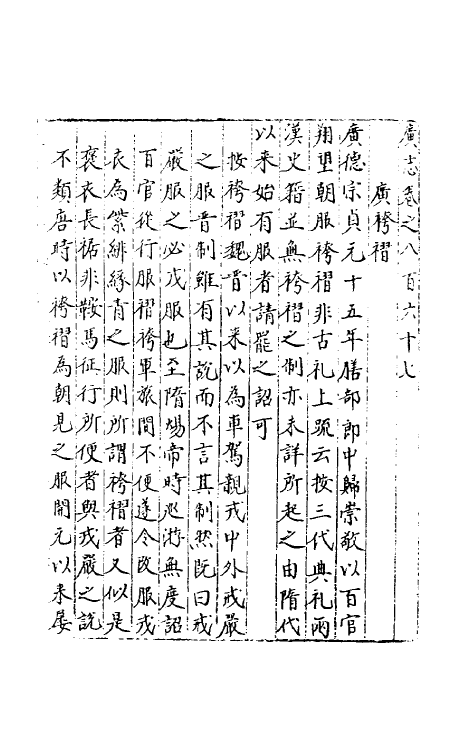 廣志卷之八百六十七
廣袴褶
廣德宗貞元十五年膳部郎中歸崇敬以百官
朔望朝服袴褶非古礼上䟽云按三代典礼兩
漢史籍並無袴褶之制亦未詳所起之由隋代
以来始有服者請罷之詔可
按袴褶魏晋以来以為車駕親戎中外戒嚴
之服晋制雖有其說而不言其制然既曰戒
嚴服之必戎服也至隋煬帝時廵游無度詔
百官從行服褶袴軍旅間不便遂令改服戎
衣為紫緋綠青之服則所謂袴褶者又似是
褒衣長裾非鞍馬征行所便者與戎嚴之說
不類唐時以袴褶為朝見之服開元以来屡